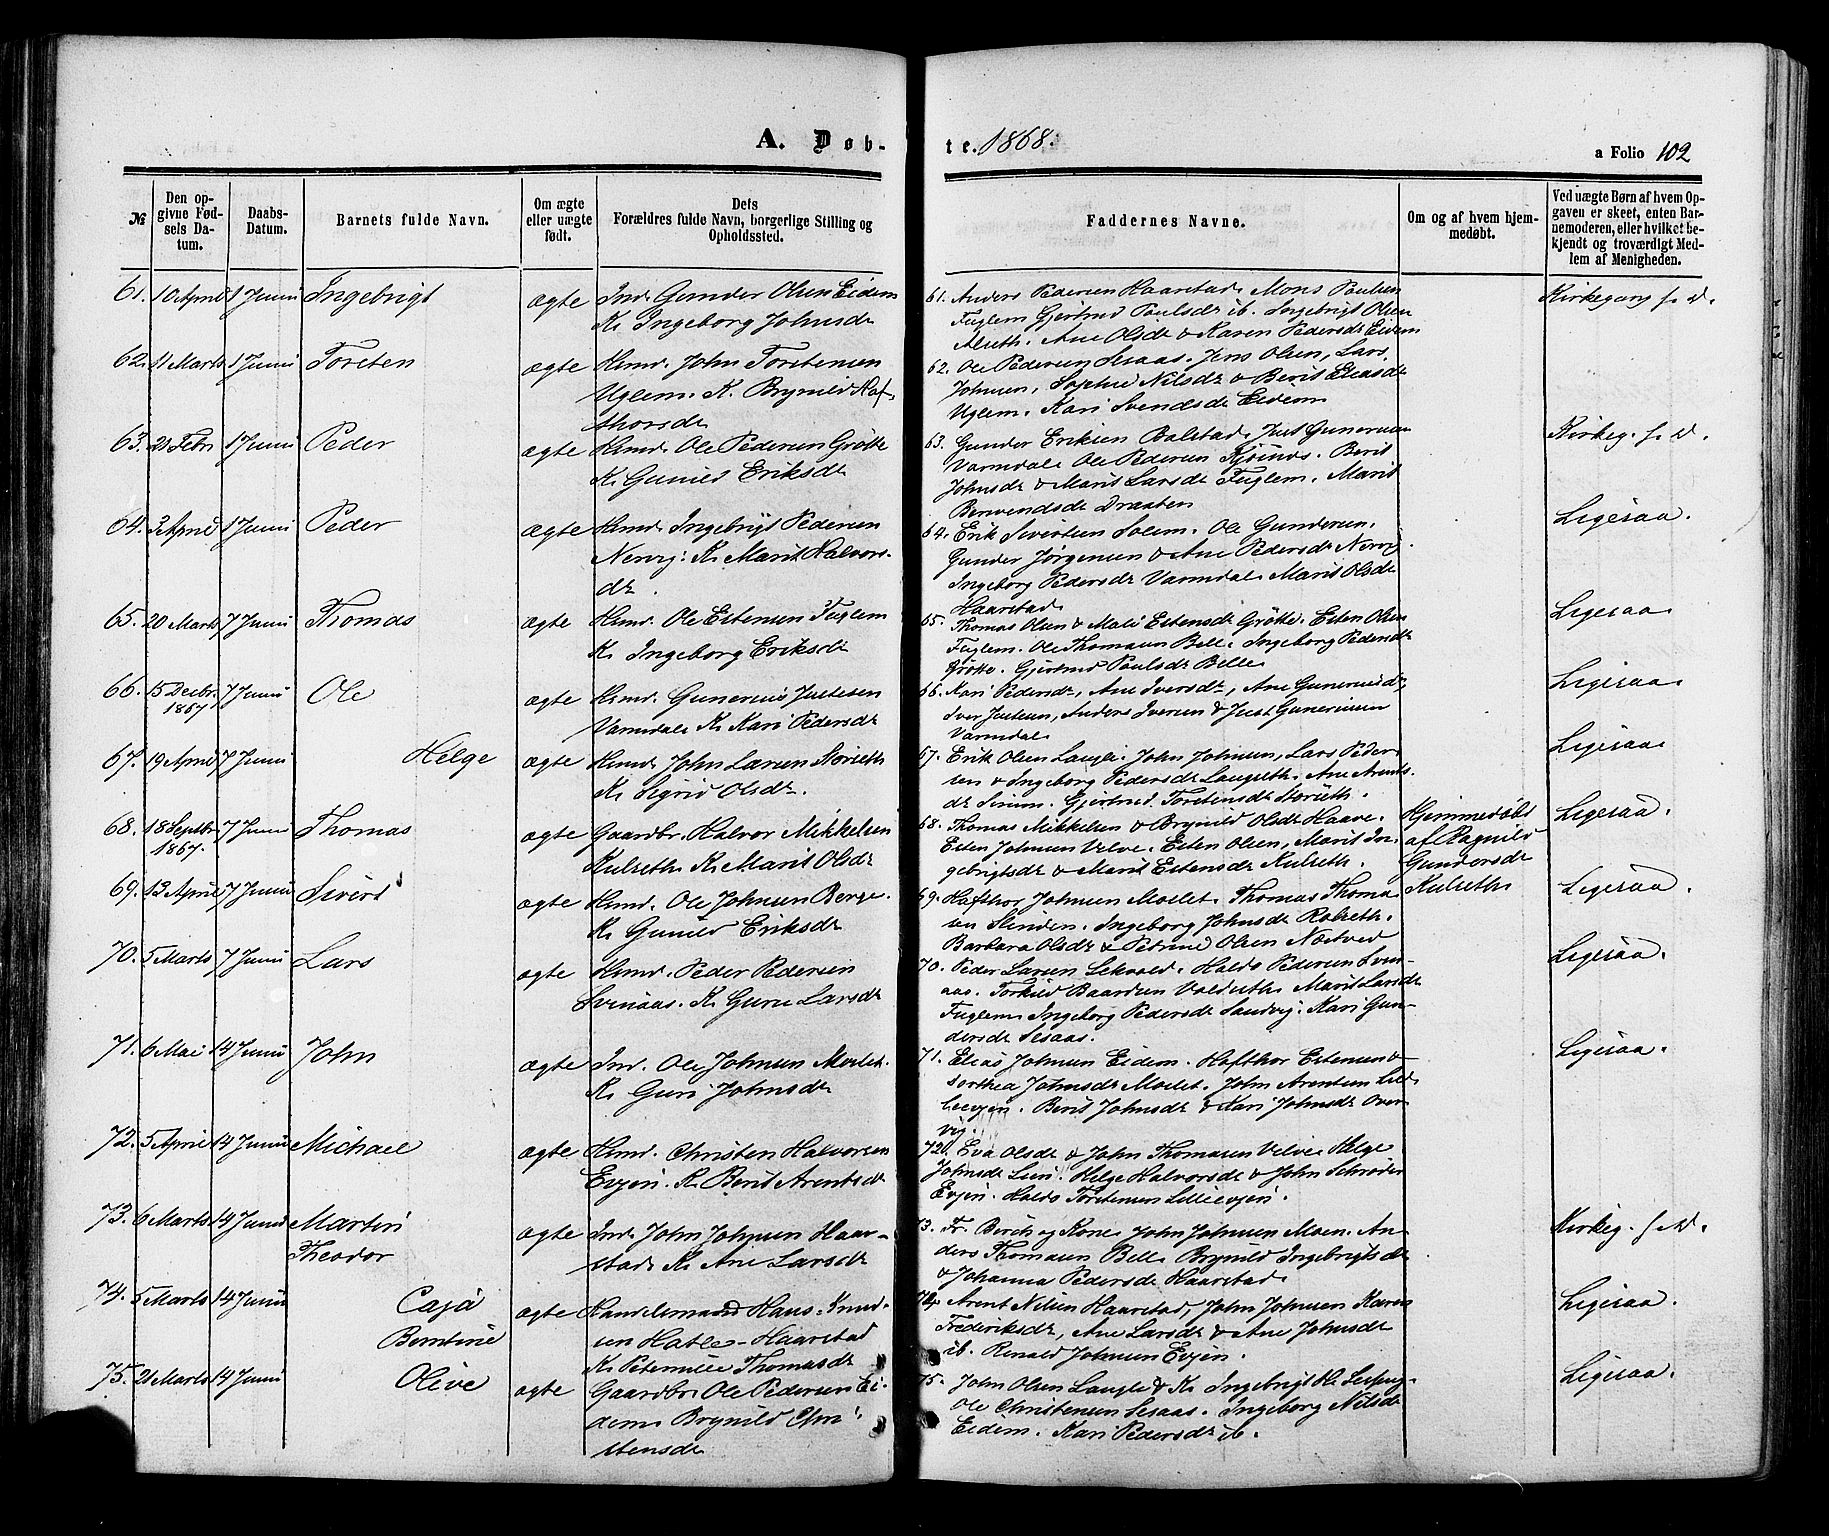 A. Døb-
te. 1868.
a Folio 102
№
Den op-
givne Fød-
sels Da-
tum.
Daabs-
Datum.
Barnets fulde Navn.
Om ægte
eller uægte
født.
Dets
Forældres fulde Navn, borgerlige Stilling og
Opholdssted.
Faddernes Navne.
Om og af hvem hjem-
medøbt.
Ved uægte Børn af hvem Op-
gaven er skeet, enten Bar-
nemoderen, eller hvilket be-
kjendt og troværdigt Med-
lem af Menigheden.
61. 10 April 1 Junii Ingebrigt ægte Ind. Gunder Olsen Eidem
K. Ingeborg Johnsdr
61. Anders Pedersen Haarstad. Mons Paulsen
Fuglem Gjertrud Paulsdr ib. Ingebrigt Olsen
Alseth. Ane Olsdr & Karen Pedersdr Eidem
Kirkegang f. d.
62. 11 Marts 1 Junii Torsten ægte Hsmd. John Torstensen
Uglem. K. Brynild Haf-
thorsdr
62. Ole Pedersen Sesaas. Jens Olsen, Lars
Johnsen, Sophie Nilsdr & Berit Eliasdr
Uglem. Kari Svendsdr Eidem
63. 21 Febr 1 Junii Peder ægte Hsmd. Ole Pedersen Grøtte
K. Gunild Eriksdr
63. Gunder Eriksen Balstad. Just Gunerusen
Varmdal. Ole Pedersen Kjøsnæs. Berit
Johnsdr & Marit Larsdr Fuglem. Marit
Bersvendsdr Draxten
Kirkeg. f. d.
64. 3 April 1 Junii Peder ægte Hsmd. Ingebrigt Pedersen
Nervig. K. Marit Halvors-
dr.
64. Erik Sivertsen Solem. Ole Gundersen.
Gunder Jørgensen & Ane Pedersdr Nervig.
Ingeborg Pedersdr Varmdal. Marit Olsdr
Haarstad
Ligesaa.
65. 20 Marts 7 Junii Thomas ægte Hsmd. Ole Estensen Fuglem
K. Ingeborg Eriksdr
65. Thomas Olsen & Mali Estensdr Grøtte. Esten Olsen
Fuglem. Ole Thomasen Belle. Ingeborg Pedersdr
Grøtte. Gjertrud Paulsdr Belle
Ligesaa
66. 15 Decbr. 7 Junii Ole ægte Hsmd. Gunerius Justesen
1867
Varmdal. K. Kari Pedersdr
66. Kari Pedersdr, Ane Iversdr, Ane Guneriusdr,
Iver Justsen, Anders Iversen & Just Gunerusen
Varmdal
Ligesaa.
67. 19 April 7 Junii Helge ægte Hsmd. John Larsen Storseth
K. Sigrid Olsdr.
67. Erik Olsen Langli. John Johnsen, Lars Peder-
sen & Ingeborg Pedersdr Langseth. Ane Arents-
dr Sirum. Gjertrud Torstensdr Storseth.
Ligesaa
68. 18 Septbr. 7 Junii Thomas ægte Gaardbr. Halvor Mikkelsen
1867.
Kulseth K. Marit Olsdr
68. Thomas Mikkelsen & Brynild Olsdr Haave.
Esten Johnsen Velve. Esten Olsen, Marit In-
gebrigtsdr & Marit Estensdr Kulseth.
Hjemmedøbt
af Ragnild
Gundersdr
Kulseth
Ligesaa.
69. 13 April 7 Junii Sivert ægte Hsmd. Ole Johnsen Berge.
K. Gunild Eriksdr
69. Hafthor Johnsen Moslet. Thomas Thoma-
sen Slinden. Ingeborg Johnsdr Rolseth.
Barbara Olsdr & Petrine Olsen Næstved
Ligesaa.
70. 5 Marts 7 Junii Lars ægte Hsmd. Peder Pedersen
Svinaas. K. Guru Larsdr
70. Peder Larsen Sekvold. Haldo Pedersen Svin-
aas. Torkild Baardsen Valdseth. Marit Larsdr
Fuglem. Ingeborg Pedersdr Sandvig. Kari Gun-
dersdr Sesaas.
Ligesaa.
71. 6 Mai 14 Junii John ægte Ind. Ole Johnsen Moslet.
K. Guri Johnsdr
71. Elias Johnsen Eidem. Hafthor Estensen &
Dorthea Johnsdr Moslet. John Arentsen Lil-
leevjen. Berit Johnsdr & Kari Johnsdr Over-
vig.
Ligesaa.
72. 5 April 14 Junii Michael ægte Hsmd. Christen Halvorsen
Evjen. K. Berit Arentsdr
72. Eva Olsdr & John Thomasen Velve. Helge
Johnsdr Lien. Helge Halvorsdr & John Schrøder
Evjen. Haldo Torstensen Lilleevjen.
73. 6 Marts 14 Junii Martin ægte Ind. John Johnsen Haar-
Theodor
stad. K. Ane Larsdr
73. Fr. Birch og Kone. John Johnsen Moen. An-
ders Thomasen Belle. Brynild Ingebrigtsdr
& Johanna Pedersdr Haarstad.
Kirkeg. f. d.
74. 5 Marts 14 Junii Caja ægte Handelsmand Hans Knud-
Berntine
sen Hatle-Haarstad
K. Peternille Thomasdr
74. Arent Nilsen Haarstad, John Johnsen Karen
Frederiksdr, Ane Larsdr & Ane Johnsdr
ib. Renald Johnsen Evjen.
Ligesaa.
75. 21 Marts 14 Junii Olive ægte Gaardbr. Ole Pedersen Ei-
dem. Brynild Chri-
stensdr
75. John Olsen Langli & K. Ingebrigt
Ole Christensen Sesaas. Ingeborg Nilsdr
Eidem. Kari Pedersdr ib.
Ligesaa.